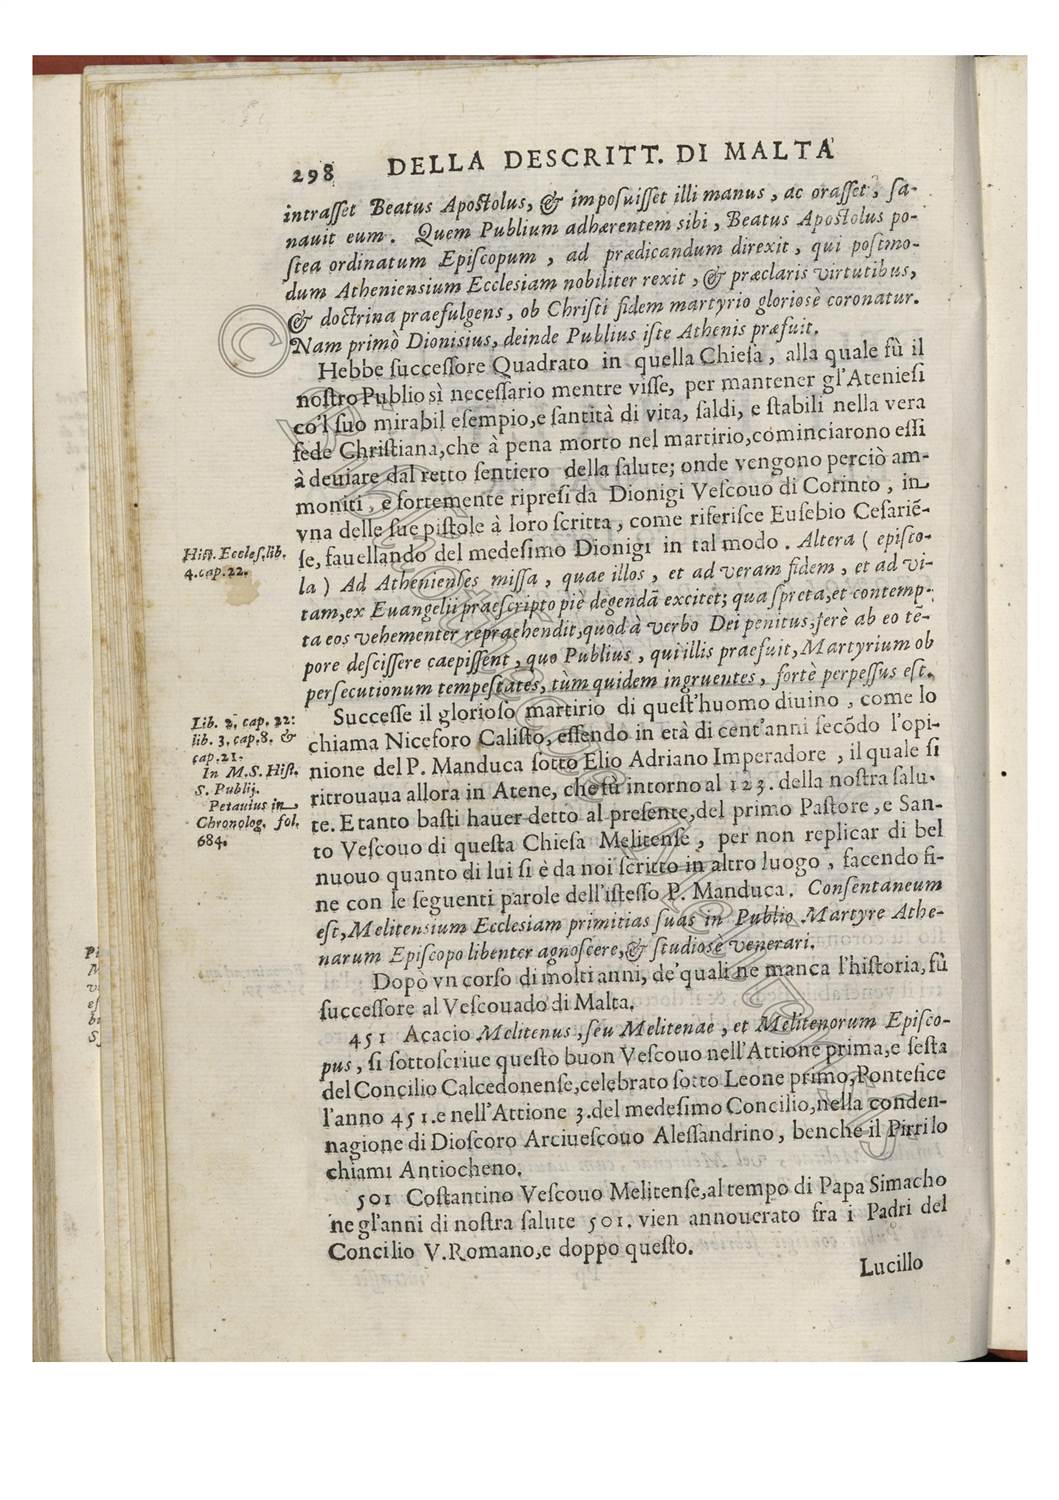 298 DELLA DESCRITT. DI MALTA
intraſſet Beatus Apoſtolus, & impoſuiſſet illi manus, ac oraſſet, ſa-
nauit eum. Quem Publium adhærentem sibi, Beatus Apoſtolus po-
ſtea ordinatum Epiſcopum, ad prædicandum direxit, qui poſtmo-
dum Athenienſium Eccleſiam nobiliter rexit, & præclaris virtutibus,
& doctrina praefulgens, ob Chriſti fidem martyrio glorioſè coronatur.
Nam primò Dionisius, deinde Publius iſte Athenis præfuit.
Hebbe ſucceſſore Quadrato in quella Chieſa, alla quale fù il
noſtro Publio sì neceſſario mentre viſſe, per mantener gl'Atenieſi
co'l ſuo mirabil eſempio, e ſantità di vita, ſaldi, e ſtabili nella vera
fede Chriſtiana, che à pena morto nel martirio, cominciarono eſſi
à deuiare dal retto ſentiero della ſalute; onde vengono perciò am-
moniti, e fortemente ripreſi da Dionigi Veſcouo di Corinto, in
vna delle ſue piſtole à loro ſcritta, come riferiſce Euſebio Ceſariẽ-
Hiſt. Eccleſ. lib.
4. cap. 22.
ſe, fauellando del medeſimo Dionigi in tal modo. Altera ( epiſto-
la ) Ad Athenienſes miſſa, quae illos, et ad veram fidem, et ad vi-
tam, ex Euangelii praeſcripto piè degendã excitet; qua ſpreta, et contemp-
ta eos vehementer repraehendit, quod à verbo Dei penitus, ferè ab eo tẽ-
pore deſciſſere caepiſſent, quo Publius, qui illis praefuit, Martyrium ob
perſecutionum tempeſtates, tùm quidem ingruentes, fortè perpeſſus eſt.
Lib. 2. cap. 32:
lib. 3. cap. 8. &
cap. 21.
In M. S. Hiſt.
S. Publij.
Petauius in
Chronolog. fol.
684.
Succeſſe il glorioſo martirio di queſt'huomo diuino, come lo
chiama Niceforo Caliſto, eſſendo in età di cent'anni ſecõdo l'opi-
nione del P. Manduca ſotto Elio Adriano Imperadore, il quale ſi
ritrouaua allora in Atene, che fù intorno al 123. della noſtra ſalu-
te. E tanto baſti hauer detto al preſente, del primo Paſtore, e San-
to Veſcouo di queſta Chieſa Melitenſe, per non replicar di bel
nuouo quanto di lui ſi è da noi ſcritto in altro luogo, facendo fi-
ne con le ſeguenti parole dell'iſteſſo P. Manduca. Conſentaneum
eſt, Melitensium Eccleſiam primitias ſuas in Publio Martyre Athe-
narum Epiſcopo libenter agnoſcere, & ſtudiosè venerari.
Dopò vn corſo di molti anni, de'quali ne manca l'hiſtoria, fù
ſucceſſore al Veſcouado di Malta.
451 Acacio Melitenus, ſeu Melitenae, et Melitenorum Epiſco-
pus, ſi ſottoſcriue queſto buon Veſcouo nell'Attione prima, e ſeſta
del Concilio Calcedonenſe, celebrato ſotto Leone primo, Pontefice
l'anno 451. e nell'Attione 3. del medeſimo Concilio, nella conden-
nagione di Dioſcoro Arciueſcouo Aleſſandrino, benche il Pirri lo
chiami Antiocheno.
501 Coſtantino Veſcouo Melitenſe, al tempo di Papa Simacho
ne gl'anni di noſtra ſalute 501. vien annouerato fra i Padri del
Concilio V. Romano, e doppo queſto.
Lucillo